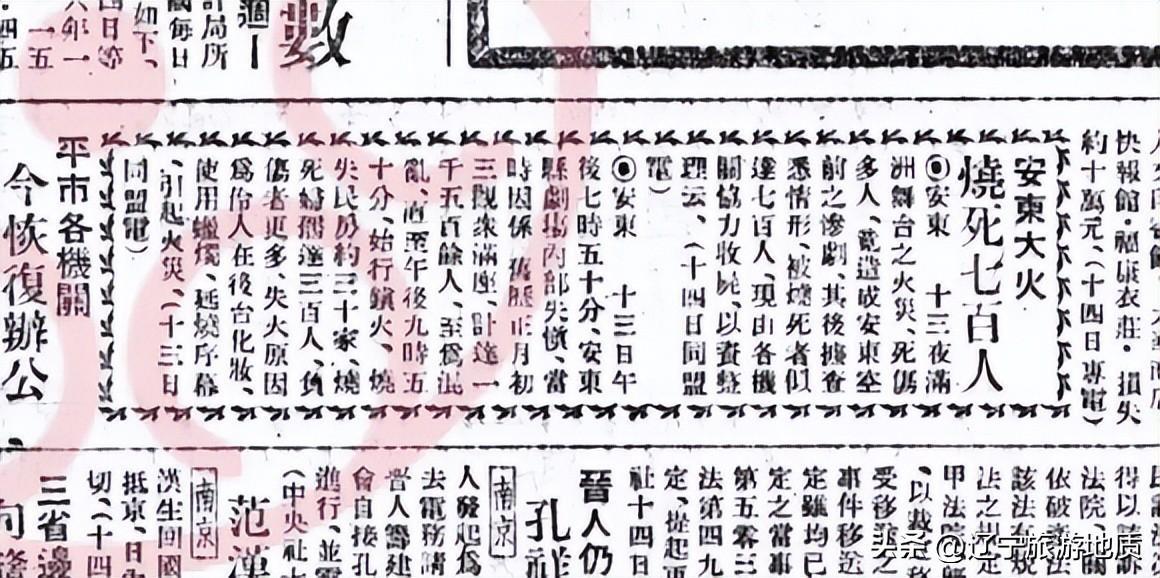 數
計局所
國每日
如下、
快報館·福康衣莊·損失
約十萬元、(十四日專電)
安東大火
燒死七百人
◉安東　十三夜滿
洲舞台之火災、死傷
多人、竟造成安東空
前之慘劇、其後據查
悉情形、被燒死者似
達七百人、現由各機
關協力收屍、以資整
理云、(十四日同盟
電)
◉安東　十三日午
後七時五十分、安東
縣劇場內部失慎、當
時因係舊曆正月初
三觀衆滿座、計達一
千五百餘人、至爲混
亂、直至午後九時五
十分、始行鎮火、燒
失民房約三十家、燒
死婦孺達三百人、負
傷者更多、失火原因
爲伶人在後台化妝、
使用蠟燭、延燒序幕
、引起火災、(十三日
同盟電)
平市各機關
今恢復辦公
得以
法院、
依破產法
該法有規
法之規定
甲法院
、以裁
受移送之
事件移送
定雖均已
定之當事
第五零三
法第四九
定、提起更
社十四日
晉人仍
孔祥
南京
人發起爲
去電務請
晉人籌建
會自接孔
進行、並電
(中央社十
范漢
南京
漢生回國
抵京、日內
切、(十四
三省邊
头条 @辽宁旅游地质